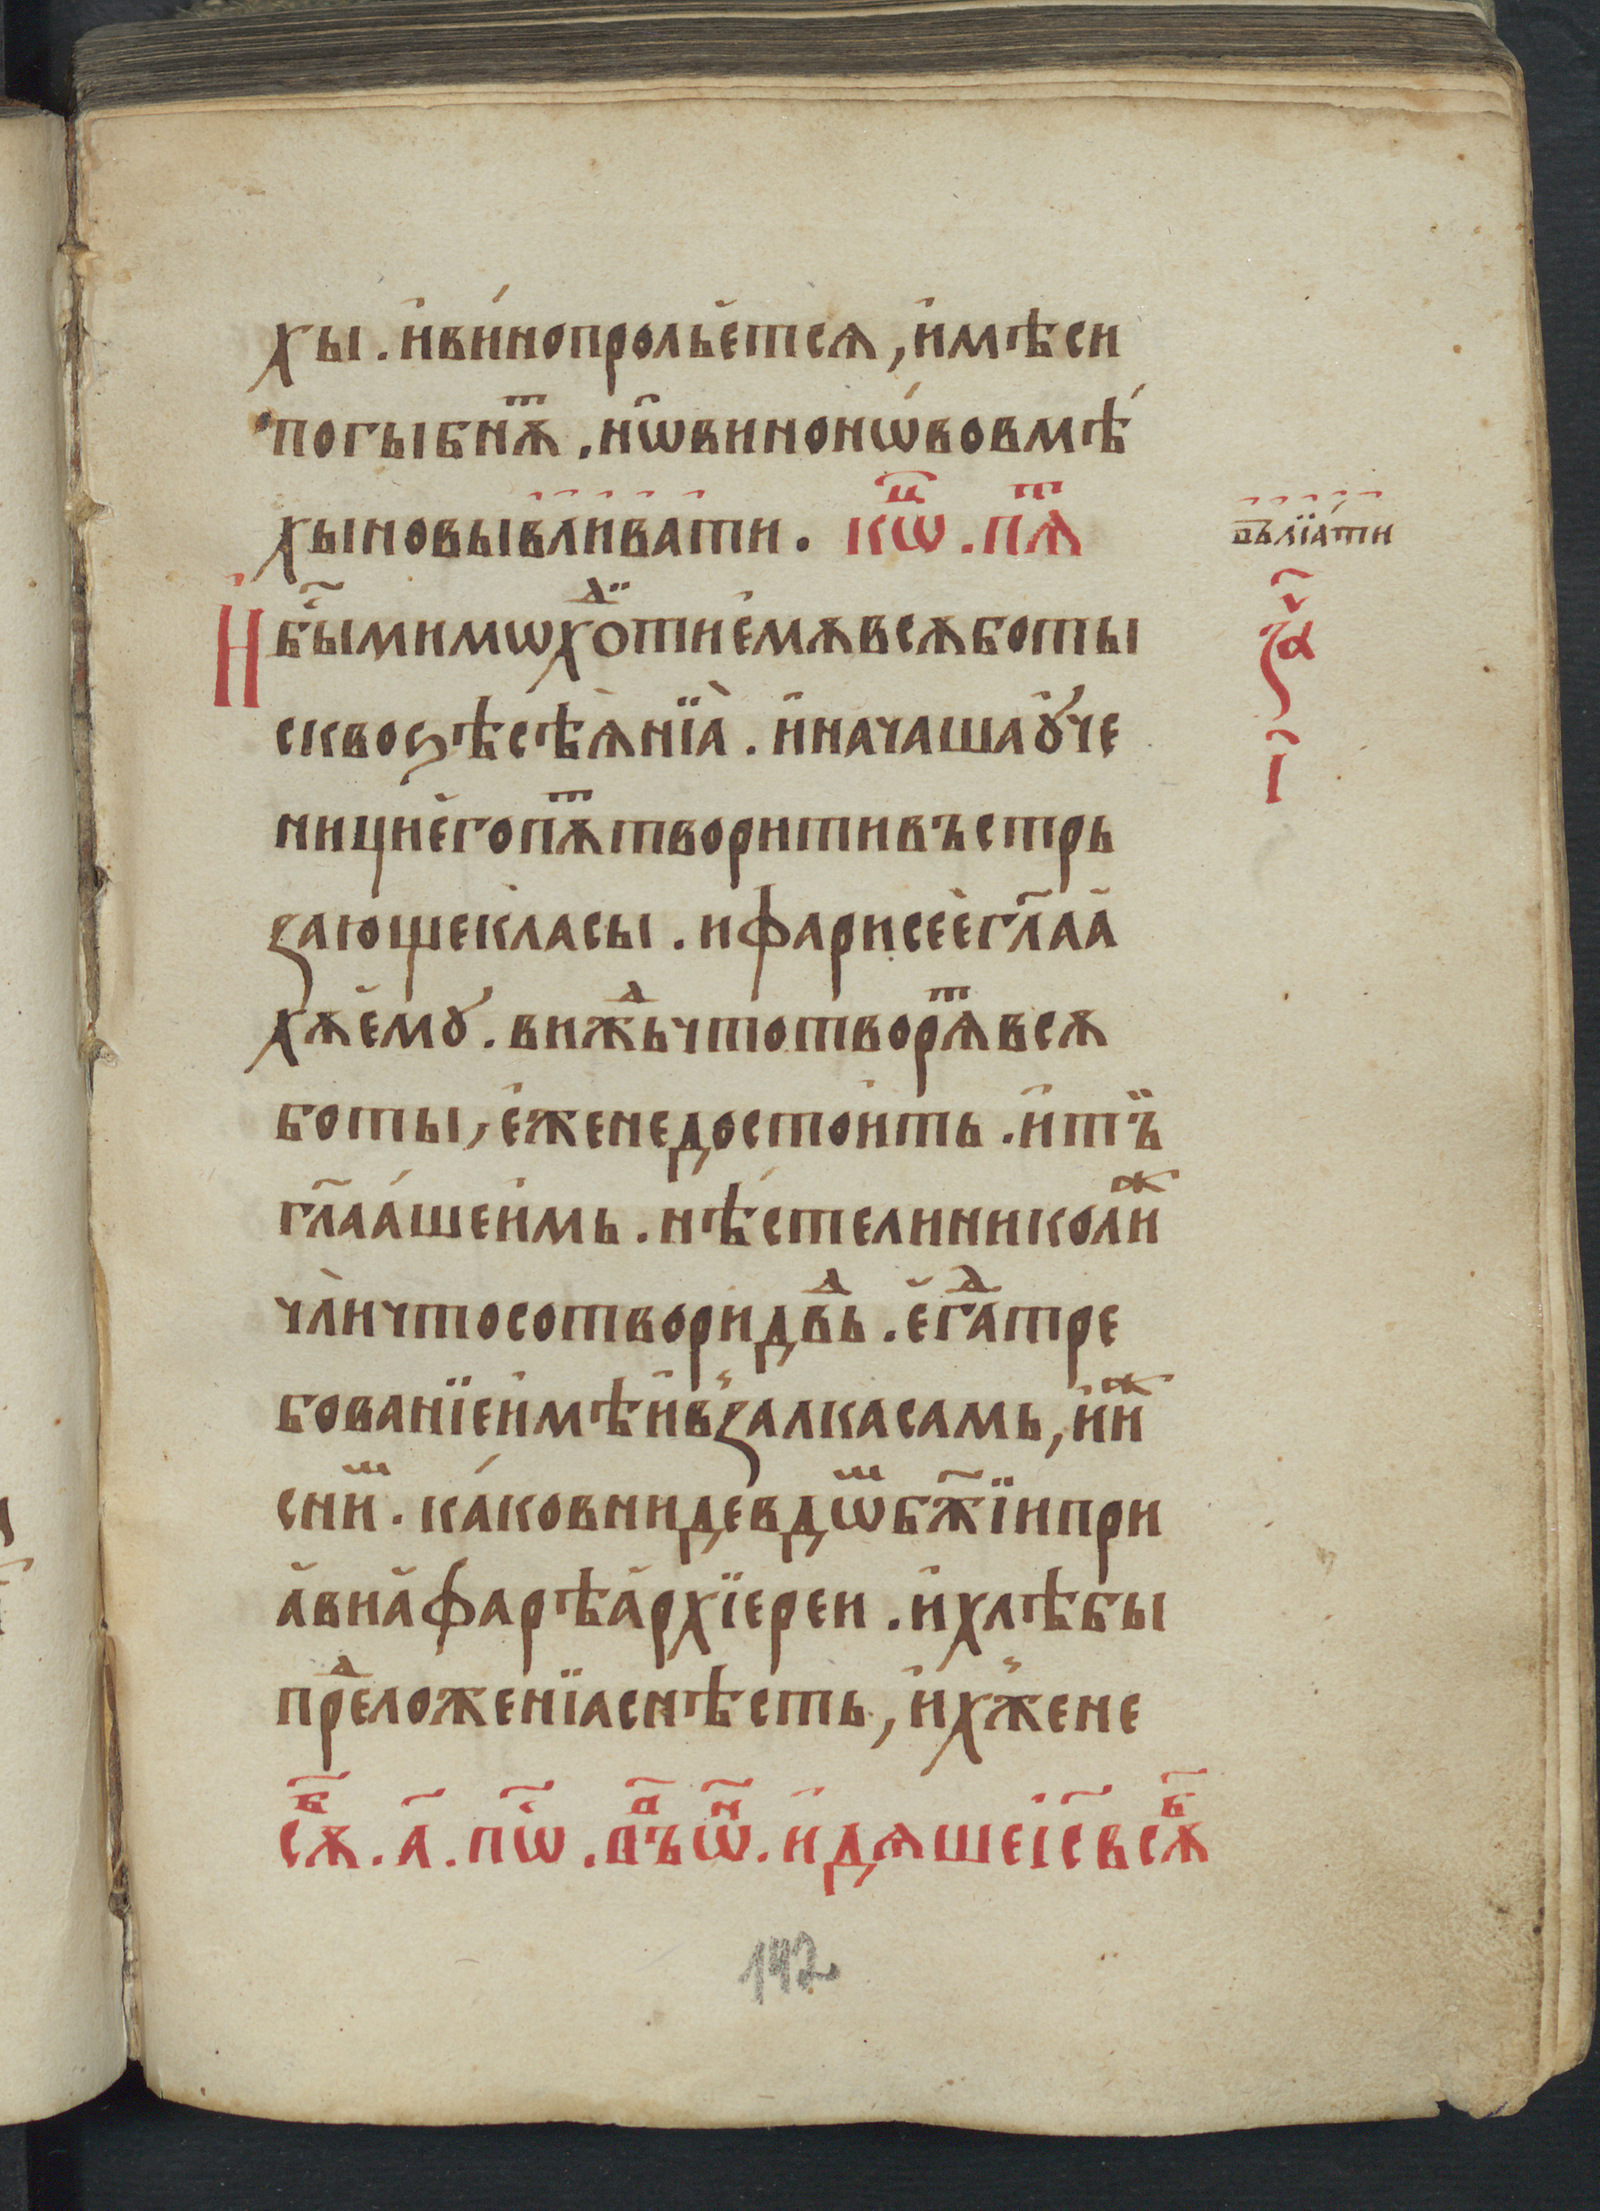 хы. и҆ви́нопролье҆тсѧ, и҆мѣси
погыбнѫⷮ. нѡ̑винонѡ́вовмѣ́
хыновыв̑лива̑ти̑. кѡⷰ҇. пѧⷮ
въл̑їа̑ти
И҆бы҇мимѡхоⷣтие҆мѫвсѫботы
з҃а
сквоѕѣсѣѧ҆нїа̀. и҆начашаꙋ҆че
і҃
ници҆е҆гопѫⷮтворитивъстрь
ꙁающекласы. ифарисее҆гл҃аа҆
хѫе҆мꙋ. вижⷣьчтотворѧⷮвсѫ
боты, е҆женедостои҆ть. и҆тъ̈
гл҃аа́шеи҆мь. нѣ́стелиниколиⷤ
чли̇чтосотворидв҃ⷣь. е҆гⷣатре
бованїеи҆мѣи҆в̾ꙁалкасамь, и҆иⷤ
снииⷨ. ка́ковнидевдѡⷨбж҃їипри
а҆виа҆фарѣа҆рхїереи. и҆хлѣбы
преⷣложенїаснѣсть, и҆х̾жене
сѫⷠ҇. а҃. пѡ҇. въⷧ҇ѡⷩ҇. и҆дѧшеі҆с҃всѫⷠ҇
142